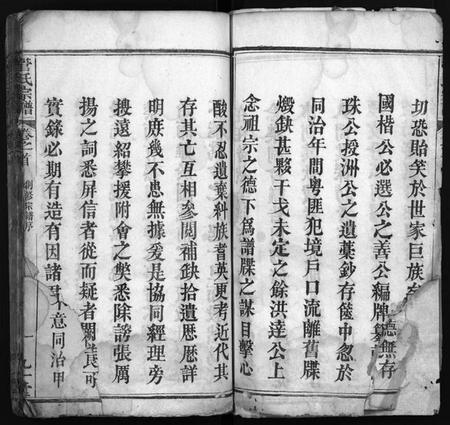 切恐貽笑於世家巨族
國楷公必選公之善公編牌
德無存
珠公援洲公之遺藁鈔存篋中忽於
同治年間粵匪犯境戶口流離舊牒
燬缺甚夥干戈未定之餘洪達公上
念祖宗之德下爲譜牒之謀目擊心
酸不忍遺棄糾族耆英更考近代其
存其亡互相參閱補缺拾遺歷歷詳
明庶幾不患無據爰是協同經理旁
搜遠紹攀援附會之獘悉除謗張厲
揚之詞悉屏信者從而疑者闕
可
實錄必期有造有因諸
意同治甲
氏宗譜
卷之首
創修宗譜序